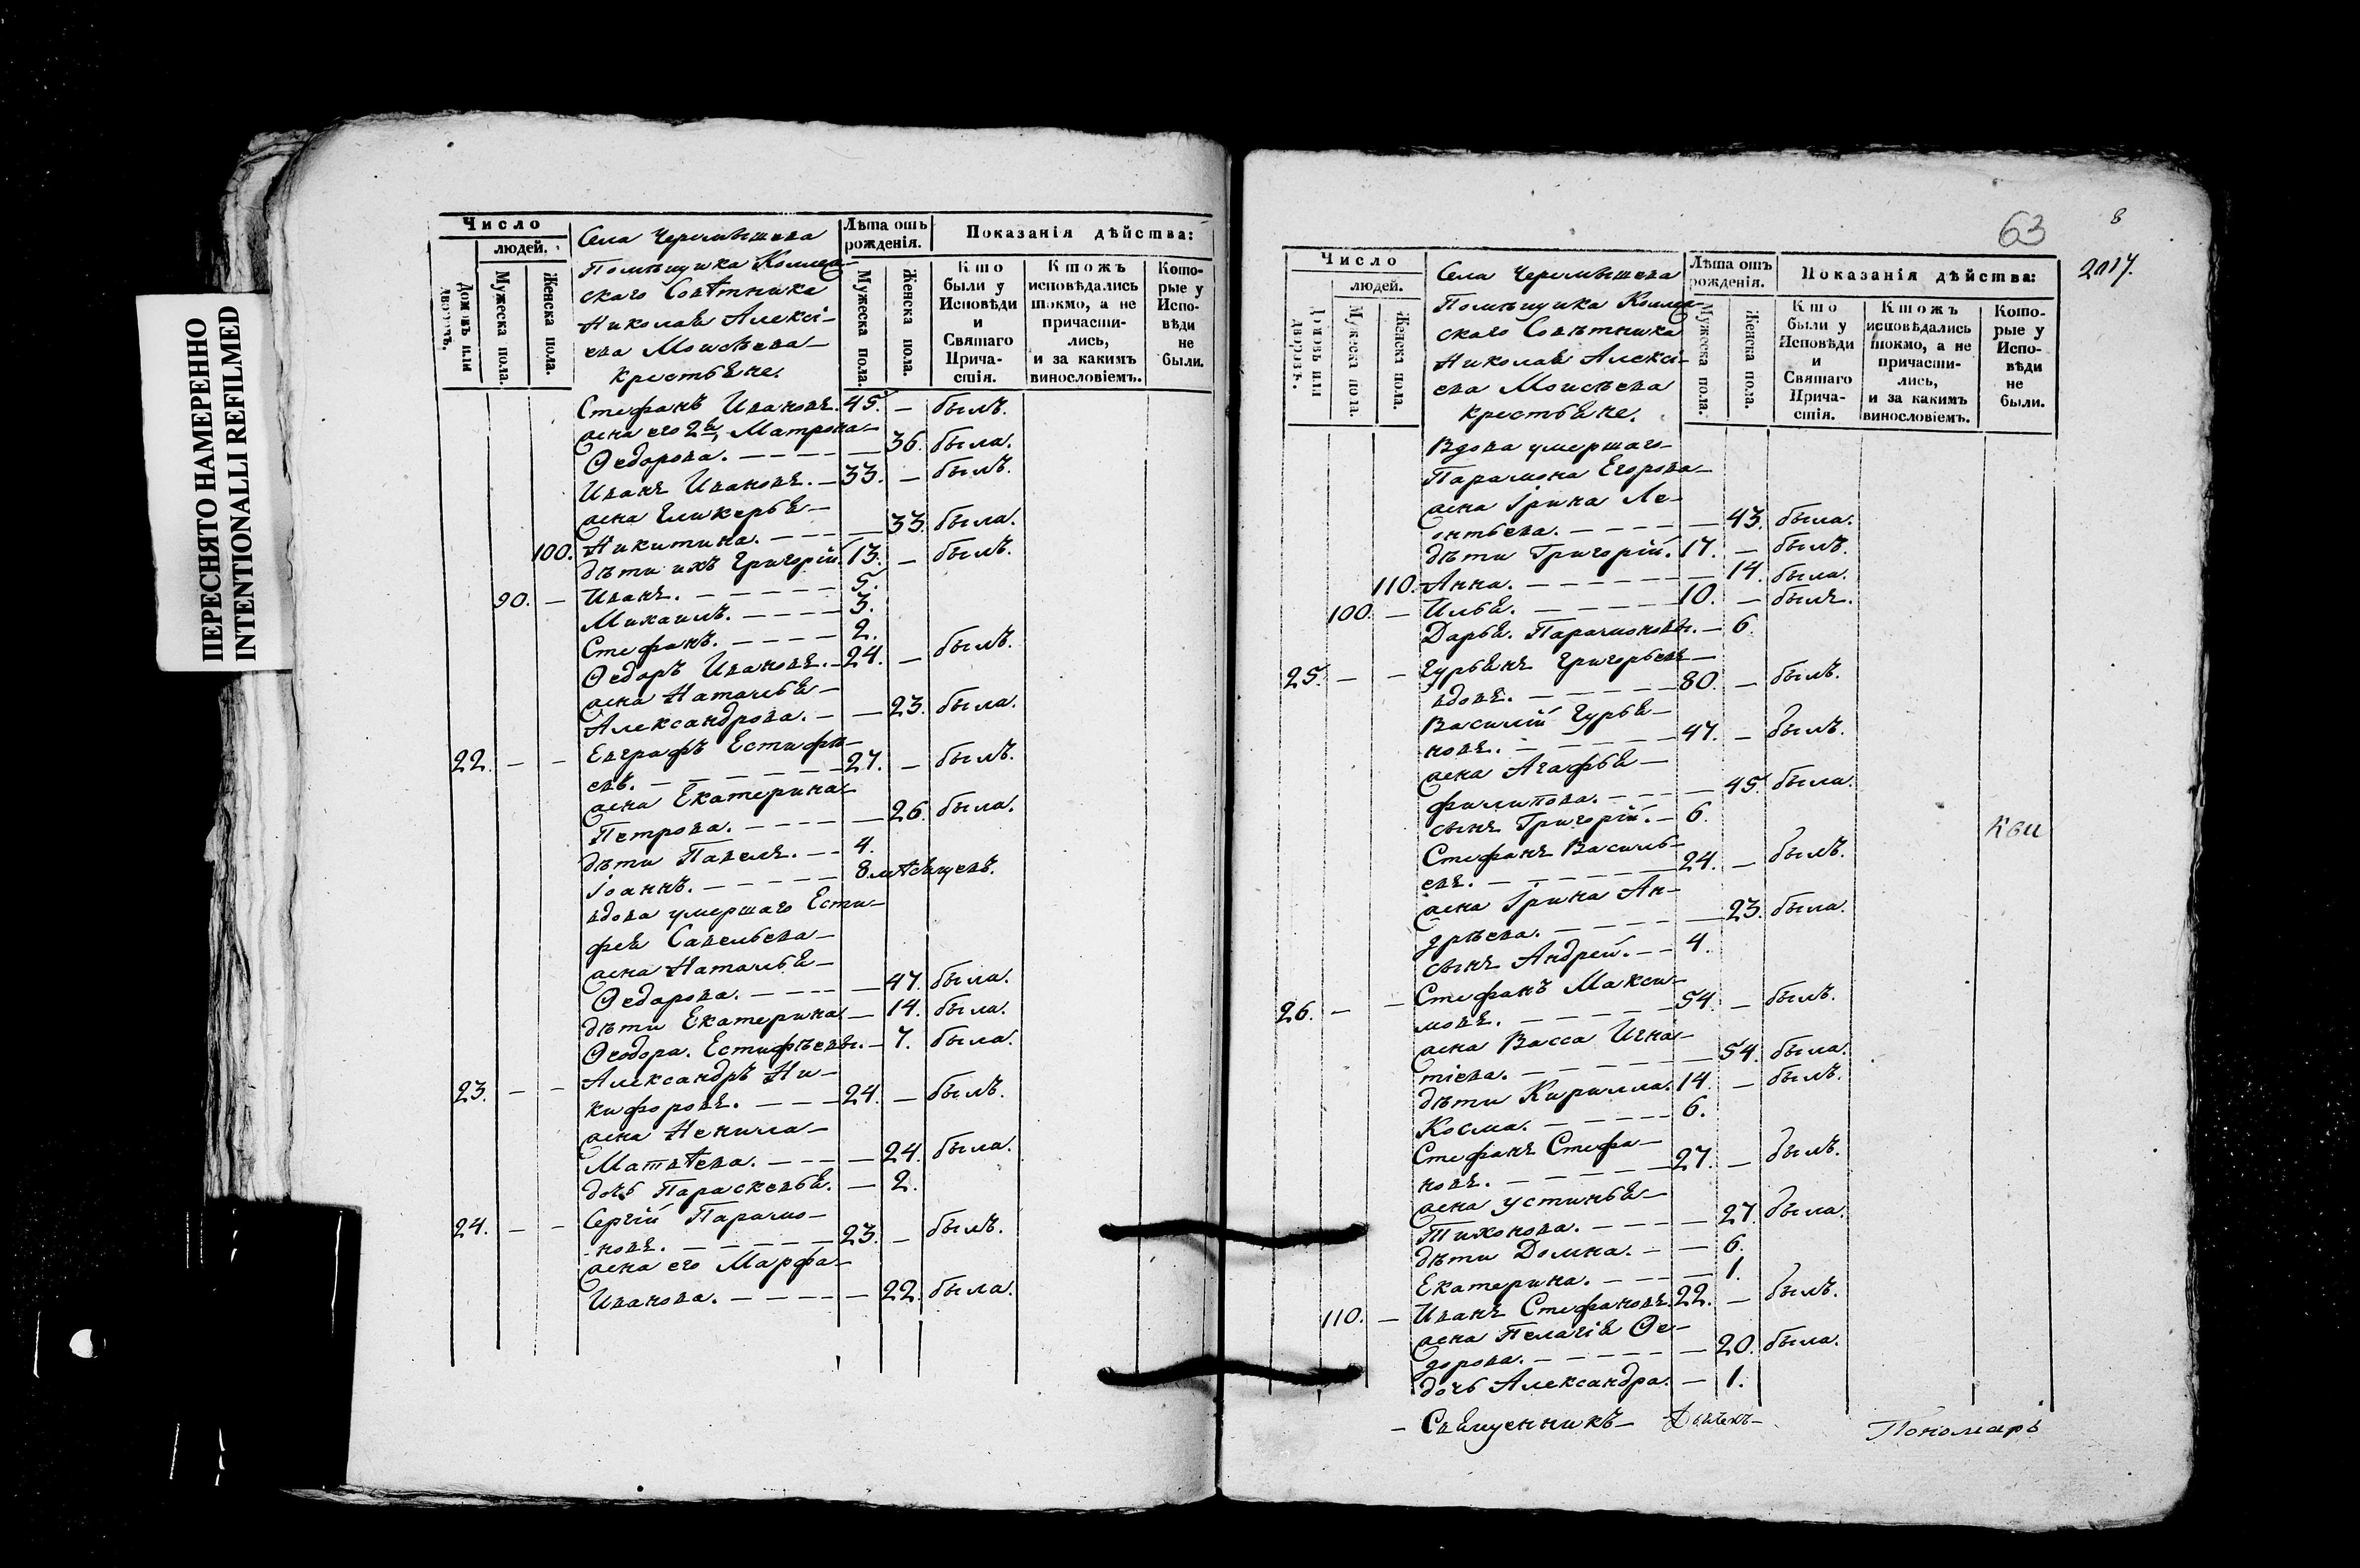 ПЕРЕСНЯТО НАМЕРЕННО
INTENTIONALLI REFILMED
Число
людей.
Домовъ или дворовъ.
Мужеска пола.
Женска пола.
Села Черемышева
Помѣщика Коллеж-
скаго Совѣтника
Николая Алексі-
ева Моисѣева
крестьяне.
Лѣта отъ рожденія.
Мужеска пола.
Женска пола.
Показанія дѣйства:
Кто были у Исповѣди и Святаго Прича-стія.
Ктожъ исповѣдались токмо, а не причасти-лись, и за какимъ винословіемъ.
Кото-рые у Испо-вѣди не были.
Стефанъ Ивановъ. 45. — былъ.
жена его 2я, Матрона
Ѳедорова. — 36. была.
Иванъ Ивановъ. — 33. — былъ.
жена Гликерья
100. Никитина. — 33. была.
дѣти ихъ Григорій. 13. — былъ.
90. — Иванъ. 5.
Михаилъ. 3.
Стефанъ. 2.
Ѳедоръ Ивановъ. — 24. — былъ.
жена Наталья
Александрова. — 23. была.
22. — — Евграфъ Естифи-
евъ. — 27. — былъ.
жена Екатерина
Петрова. — 26. была.
дѣти Павелъ. — 4.
Іоаннъ. 8. мѣсяцевъ.
вдова умершаго Ести-
фея Савельева
жена Наталья
Ѳедорова. — 47. была.
дѣти Екатерина — 14. была.
Ѳеодора. Естифѣевы. — 7. была.
23. — — Александръ Ни-
кифоровъ. — 24. — былъ.
жена Ненила
Матвѣева. — 24. была.
дочь Параскевья. — 2.
24. — — Сергій Парамо-
новъ. — 23. — былъ.
жена его Марфа
Иванова. — 22. была.
63
8
2017.
Число
людей.
Домовъ или дворовъ.
Мужеска пола.
Женска пола.
Села Черемышева
Помѣщика Коллеж-
скаго Совѣтника
Николая Алексі-
ева Моисѣева
крестьяне.
Лѣта отъ рожденія.
Мужеска пола.
Женска пола.
Показанія дѣйства:
Кто были у Исповѣди и Святаго Прича-стія.
Ктожъ исповѣдались токмо, а не причасти-лись, и за какимъ винословіемъ.
Кото-рые у Испо-вѣди не были.
Вдова умершаго
Парамона Егорова
жена Ірина Ле-
онтьева. — 43. была.
дѣти Григорій. 17. — былъ.
110. Анна. — 14. была.
100. — Илья. 10. — былъ.
Дарья. Парамоновы. — 6.
25. — — Гурьянъ Григорьевъ
вдовъ. 80. — былъ.
Василій Гурья-
новъ. 47. — былъ.
жена Агафья
Филипова. — 45. была.
сынъ Григорій. — 6.
Стефанъ Василь-
евъ. 24. — былъ.
жена Ірина Ан-
дрѣева. — 23. была.
сынъ Андрей. — 4.
26. — — Стефанъ Макси-
мовъ. 54. — былъ.
жена Васса Игна-
тіева. — 54. была.
дѣти Кирилла. 14. — былъ.
Косма. 6.
Стефанъ Стефа-
новъ. 27. — былъ.
жена Устинья
Тихонова. — 27. была.
дѣти Домна. — 6.
Екатерина. — 1.
110. — Иванъ Стефановъ. 22. — былъ.
жена Пелагія Ѳе-
дорова. — 20. была.
дочь Александра. — 1.
— Священникъ —
Пономарь